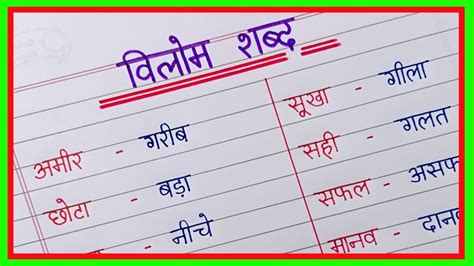 विलोम शब्द
अमीर - गरीब
छोटा - बड़ा
- नीचे
सूखा - गीला
सही - गलत
सफल -
मानव -